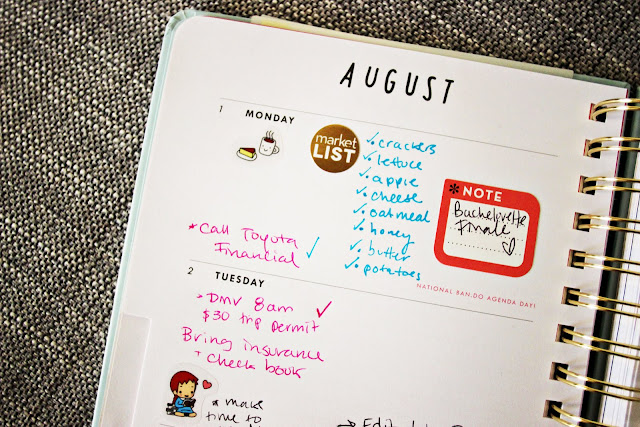 AUGUST
1 MONDAY
market
LIST
✓ • crackers
✓ • lettuce
✓ • apple
✓ • cheese
✓ • oatmeal
✓ • honey
✓ • butter
✓ • potatoes
* NOTE
Bachelorette
Finale ♡
* Call Toyota
Financial ✓
NATIONAL BAN.DO AGENDA DAY!
2 TUESDAY
* DMV 8am ✓
$30 trip permit
Bring insurance
+ check book
* make
time to